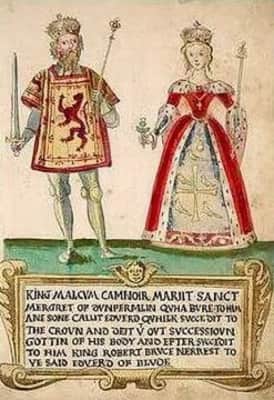 KING MALCVM CAMNOIR MARIIT SANCT
MERGRET OF DVNFERMLIN QVHA BVRE TO HIM
ANE SONE CALLIT EDVERD QVHILK SVCCEDIT TO
THE CROVN AND DEIT Vͭ OVT SVCCESSIOVN
GOTTIN OF HIS BODY AND EFTER SVCCEDIT
TO HIM KING ROBERT BRVCE NERREST TO
YE SAID EDVERD OF BLVDE